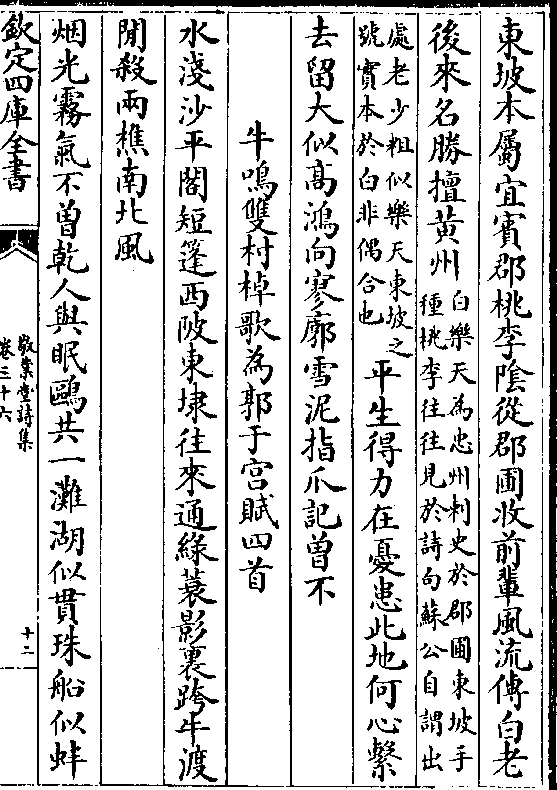 東坡本屬宜賓郡桃李陰從郡圃收前輩風流傳白老
後來名勝擅黄州白樂天為忠州刺史於郡圃東坡手
種桃李往往見於詩句蘇公自謂出
處老少粗似樂天東坡之
號實本於白非偶合也平生得力在憂患此地何心繫
去留大似髙鴻向寥廓雪泥指爪記曽不
牛鳴雙村棹歌為郭于宫賦四首
水淺沙平閣短篷西陂東埭往來通緑蓑影裏跨牛渡
閒殺兩樵南北風
烟光霧氣不曽乾人與眠鷗共一灘湖似貫珠船似蚌
欽定四庫全書
敬業堂詩集
卷三十六
十二